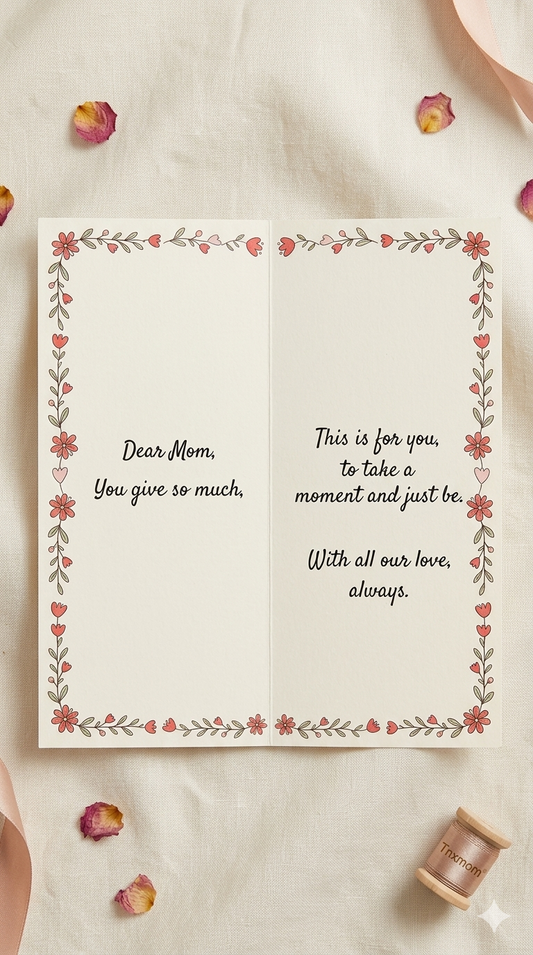 Dear Mom,
You give so much,
This is for you,
to take a
moment and just be.
With all our love,
always.
Tnxmom